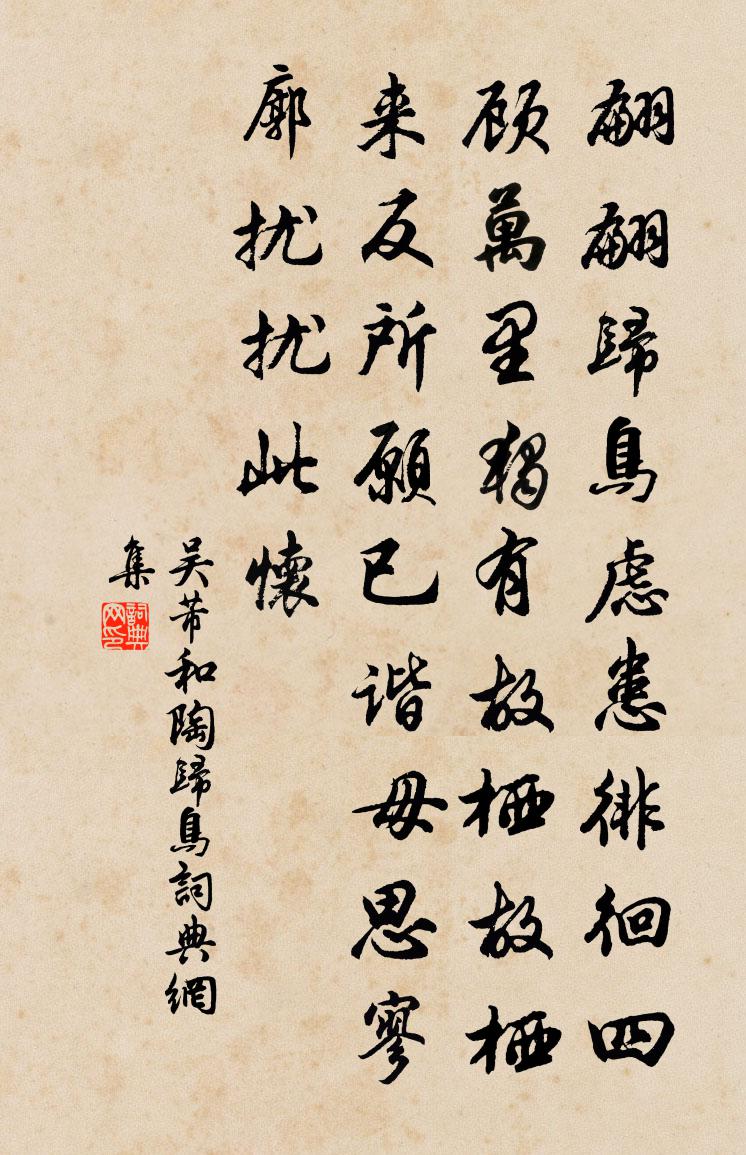 翩翩歸鳥慮患徘徊四
顾萬里獨有故栖故栖
来反所願已谐毋思寥
廓扰扰此懷
吴芾和陶歸鳥詞典網
集
詞典
网印